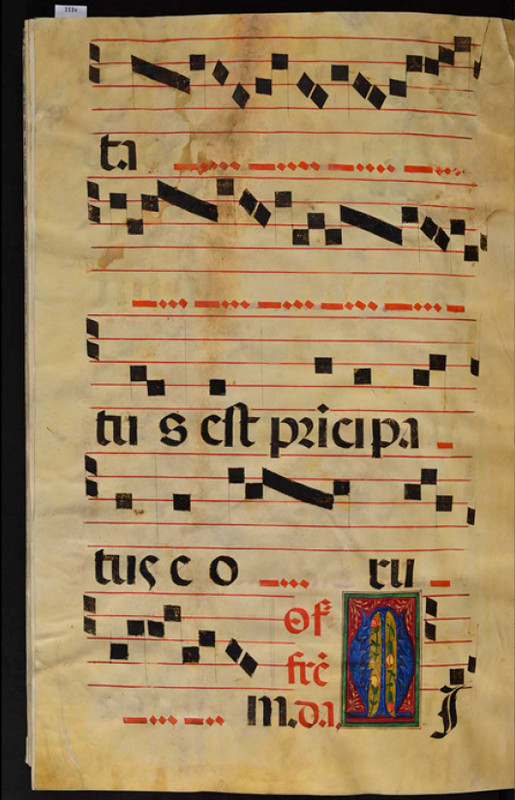 ta
tu s est pricipa
tus e o ru
Of
frē
m. da. M I